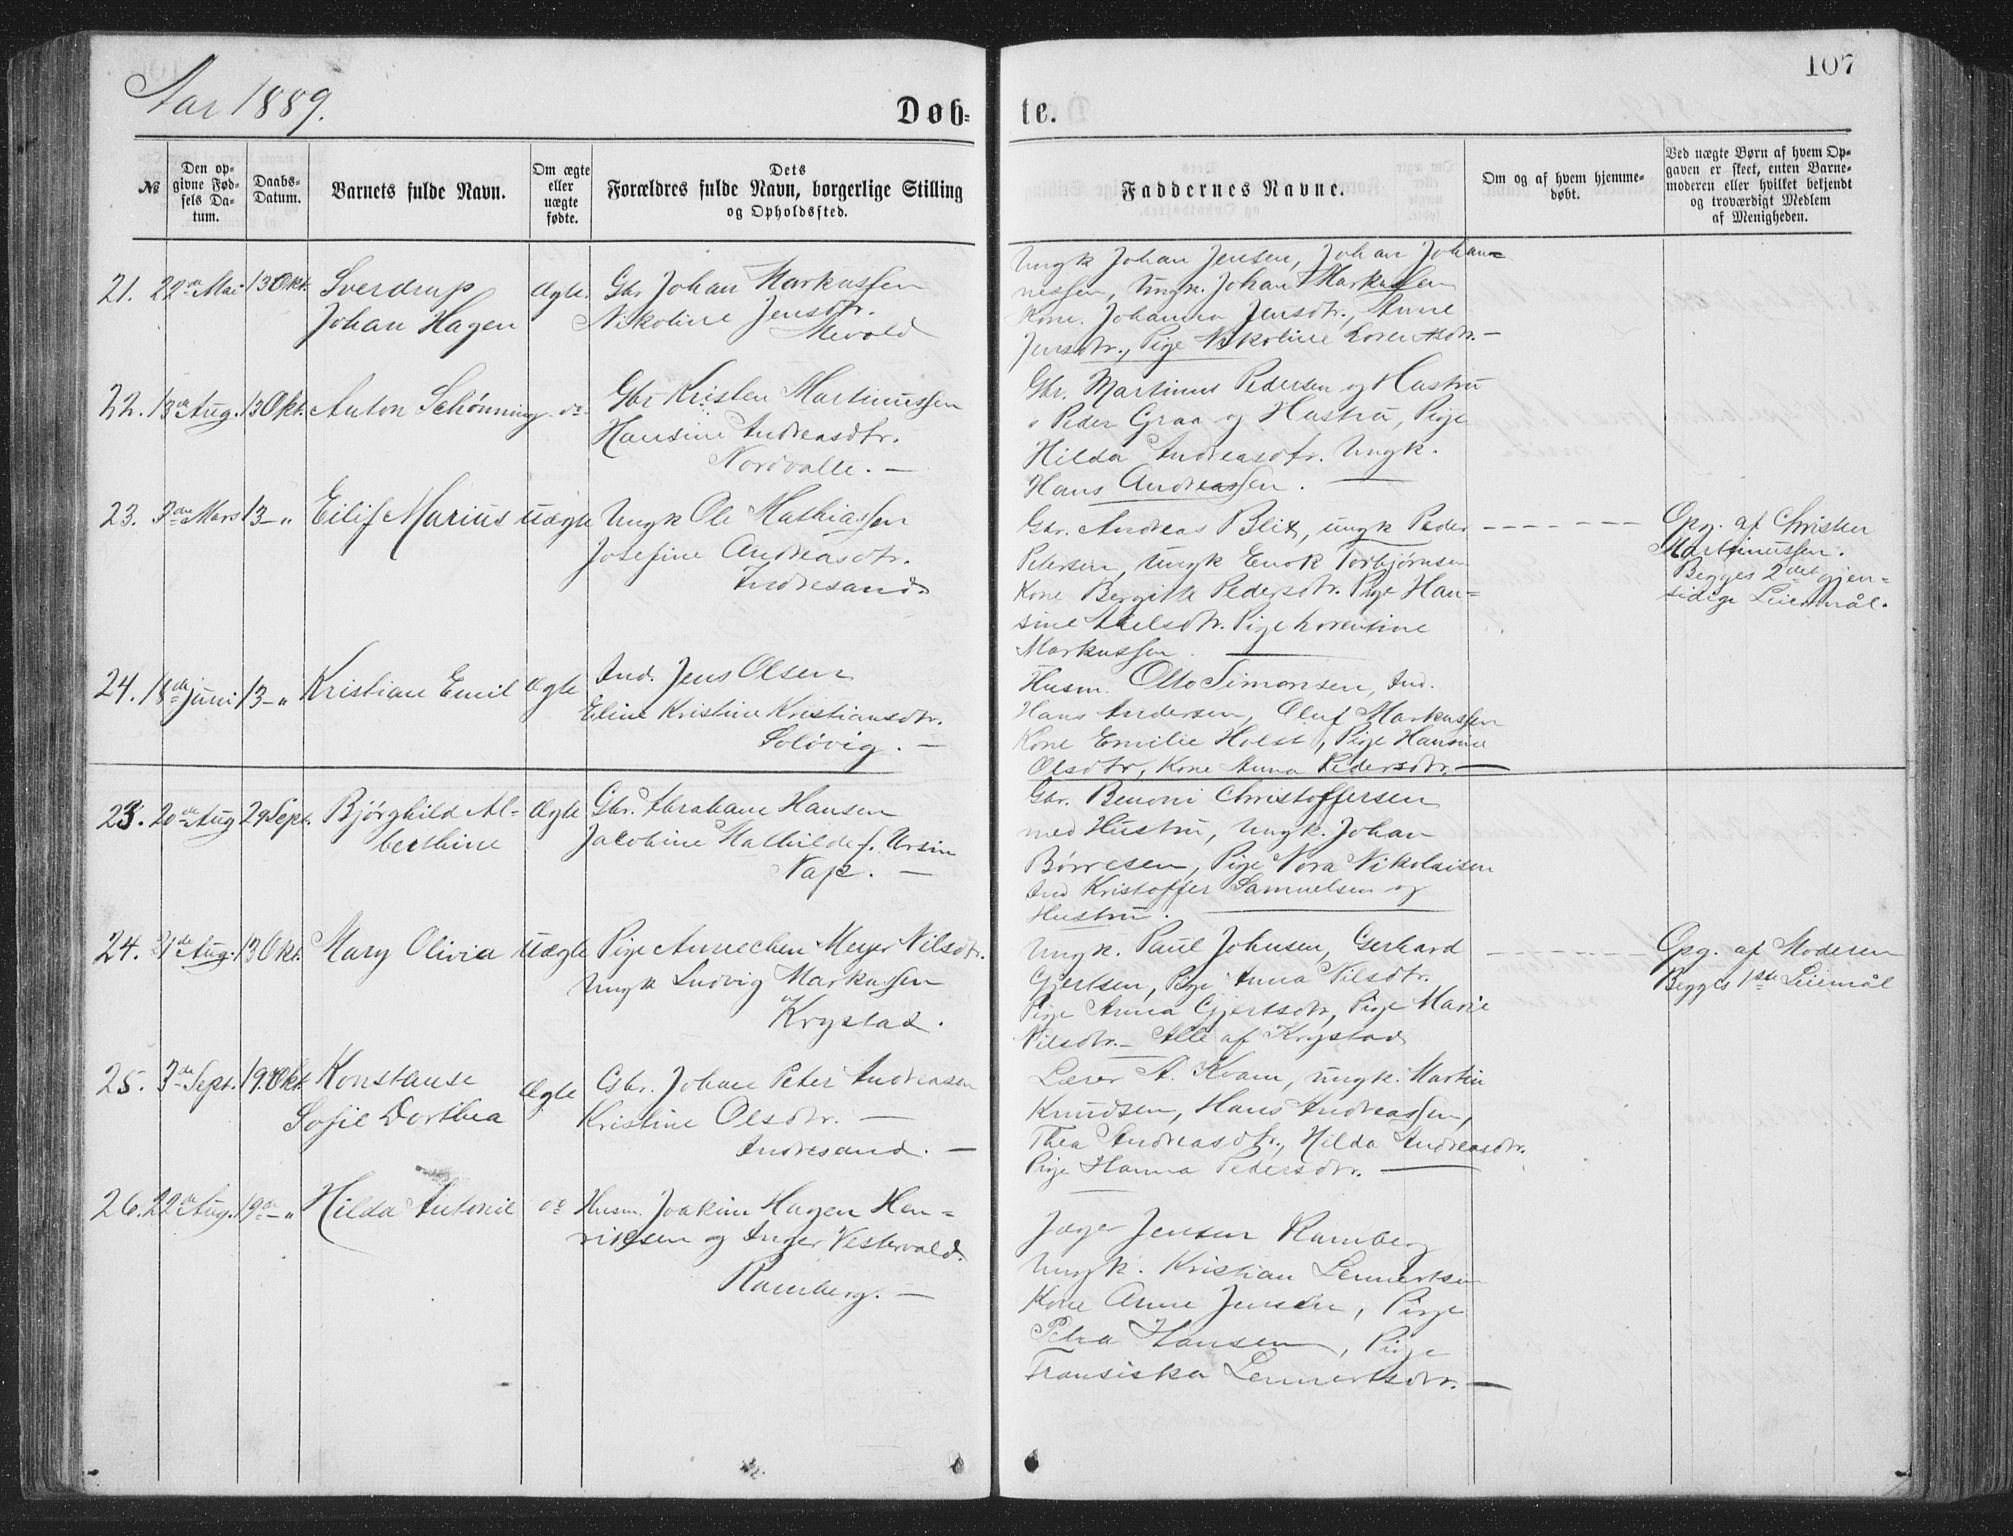 107
Aar 1889.
Døb-
te.
№
Den op-
givne Fød-
sels Da-
tum.
Daabs-
Datum.
Barnets fulde Navn.
Om ægte
eller
uægte
fødte.
Dets
Forældres fulde Navn, borgerlige Stilling
og Opholdssted.
Faddernes Navne.
Om og af hvem hjemme-
døbt.
Ved uægte Børn af hvem Op-
gaven er skeet, enten Barne-
moderen eller hvilket bekjendt
og troværdigt Medlem
af Menigheden.
21. 22de Mai 13 Okt. Sverdrup
Johan Hagen
Ægte.
Gbr Johan Markussen
Nikoline Jensdtr.
Mevold
Ungk Johan Jensen, Johan Johan-
nessen, Ungk. Johan Markussen
Kone. Johanna Jensdtr., Anne
Jensdtr., Pige Nikoline Lorentsdtr. —
22. 13de Aug. 13 Okt. Anton Schønning do
Gbr Kristen Martinussen
Hansine Andreasdtr.
Nordvalle. —
Gbr. Martinus Pedersen og Hustru
" Peder Graa og Hustru, Pige
Hilda Andreasdtr. Ungk.
Hans Andreassen. —
23. 3de Mars 13 — " Eilif Marius uægte
Ungk Ole Mathiassen
Josefine Andreasdtr.
Andresand
Gbr. Andreas Blix, ungk Peder
Petersen, Ungk Enok Torbjørnsen
Kone Bergitte Pedersdtr. Pige Han-
sine Nielsdtr. Pige Lorentine
Markussen. —
Opg. af Christen
Martinussen.
Begges 2det gjen-
sidige Leiermål.
24. 18de Juni 13 — " Kristian Emil Ægte
Ind. Jens Olsen
Eline Kristine Kristiansdtr.
Soløvig. —
Husm. Otto Simonsen, Ind.
Hans Andersen, Oluf Markussen
Kone Emilie Holst, Pige Hansine
Olsdtr, Kone Anna Pedersdtr. —
23. 20de Aug 29 Sept. Bjørghild Al-
berthine
Ægte
Gbr. Abraham Hansen
Jacobine Mathilde f. Ursin
Nap. —
Gbr. Benoni Christoffersen
med Hustru, Ungk. Johan
Børresen, Pige Nora Nikolaisen
Ind Kristoffer Samuelsen og
Hustru. —
24. 21de Aug. 13 Okt. Mary Olivia uægte
Pige Annechen Meyer Nilsdtr.
Ungk Ludvig Markussen
Krystad.
Ungk. Paul Johnsen, Gerhard
Gjertsen, Pige Anna Nilsdtr.
Pige Anna Gjertsdtr, Pige Marie
Nilsdtr. — Alle af Krystad
Opg. af Moderen
Begges 1ste Leiermål
25. 3de Sept. 19. Okt. Konstanse
Sofie Dorthea
Ægte
Gbr. Johan Peter Andreasen
Kristine Olsdtr. —
Andresand. —
Lærer A. Kvam, ungk. Martin
Knudsen, Hans Andreassen,
Thea Andreasdtr., Hilda Andreasdtr.
Pige Hanna Pedersdtr. —
26. 22de Aug. 19de — " Hilda Antonie do
Husm. Joakim Hagen Hen-
riksen og Inger Vestervald.
Ramberg. —
Jæger Jensen Ramberg
Ungk. Kristian Lennertsen
Kone Anne Jensen, Pige
Petra Hansen, Pige
Fransiska Lennertsdtr. —